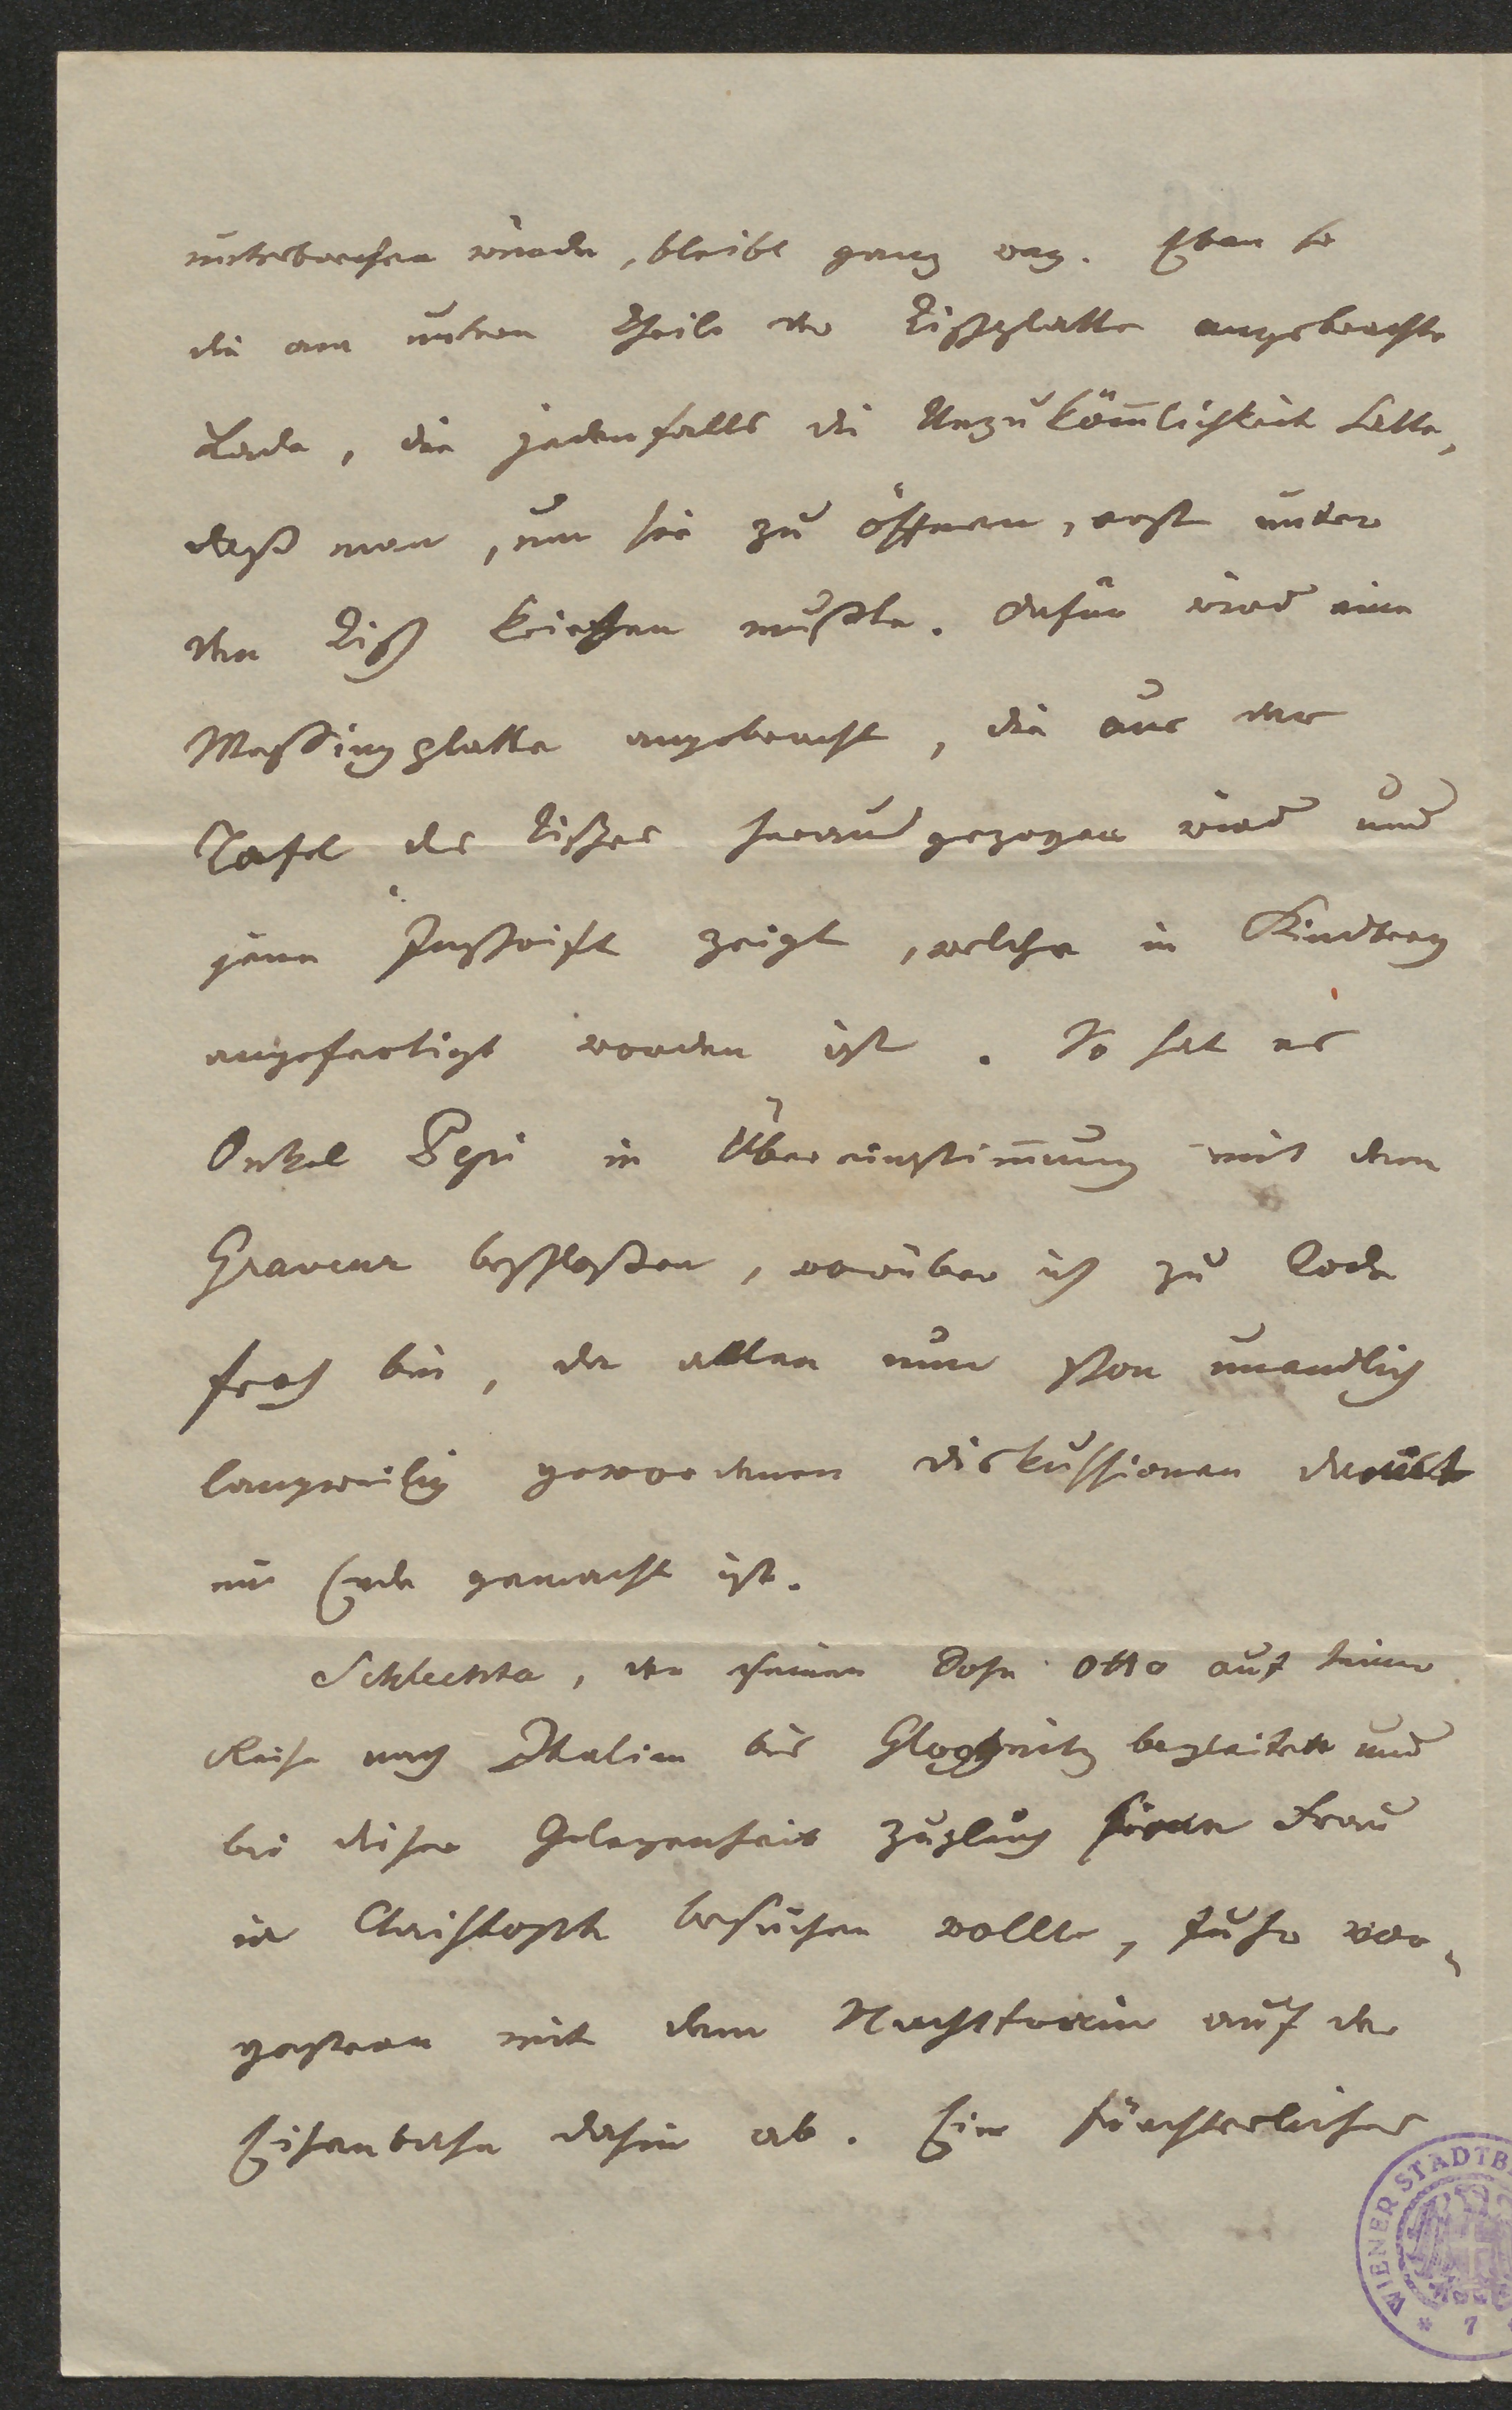 unterbrochen würde, bleibt ganz weg. Eben so
die am untern Theile der Tischplatte angebrachte
Lade, die jedenfalls die Unzukömlichkeit hatte,
daß man, um sie zu öffnen, erst unter
den Tisch kriechen mußte. Dafür wird eine
Messingplatte angebracht, die aus der
Tafel des Tisches herausgezogen wird und
jene Inschrift zeigt, welche in Kindberg
angefertigt worden ist. So hat es
Onkel Pepi in Übereinstimung mit dem
Graveur beschlossen, worüber ich zu Tode
froh bin, da allen nun schon unendlich
langweilig gewordenen Diskussionen damit
ein Ende gemacht ist.
Schlechta, der seinen Sohn Otto auf seiner
Reise nach Italien bis Gloggnitz begleiten und
bei dieser Gelegenheit zugleich seine Frau
in Christoph besuchen wollte, fuhr vor-
gestern mit dem Nachttrain auf der
Eisenbahn dahin ab. Ein fürchterliches
WIENER STADTB
* 7 *